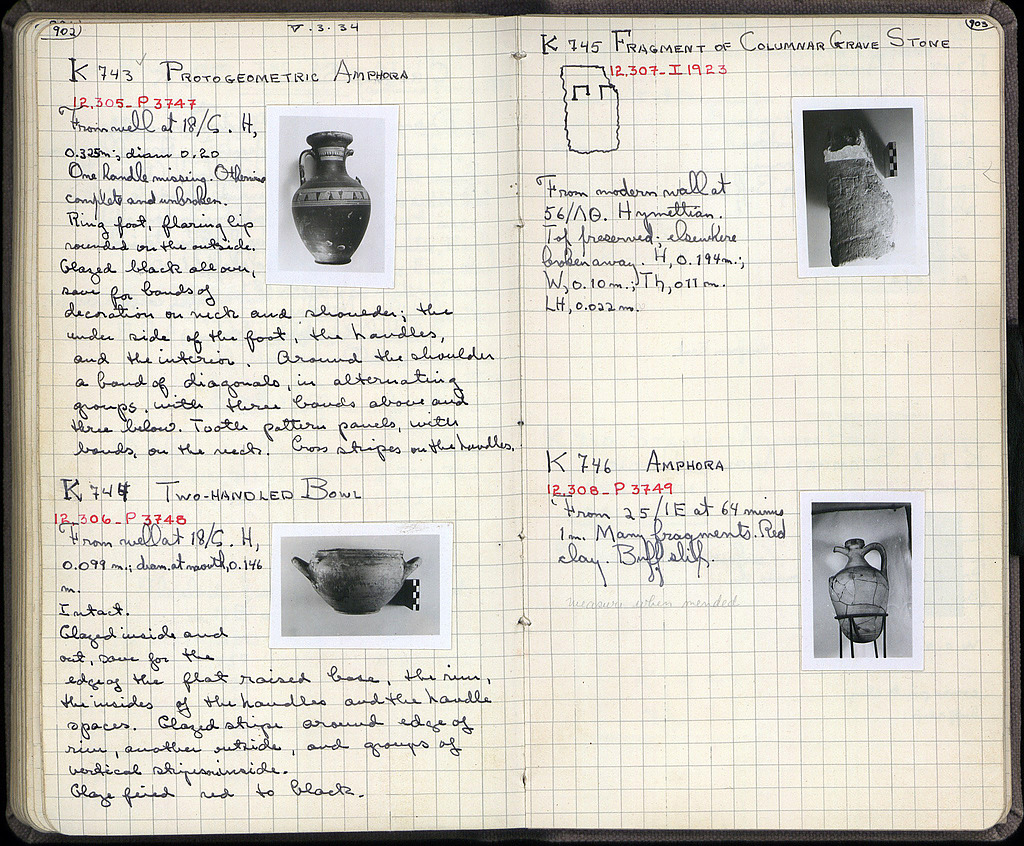 902
V.3.34
K 743 PROTOGEOMETRIC AMPHORA
12.305-P 3747
From well at 18/ς. H,
0.325m; diam 0.20
One handle missing. Otherwise
complete and unbroken.
Ring foot, flaring lip
rounded on the outside.
Glazed black all over,
save for bands of
decoration on neck and shoulder; the
under side of the foot, the handles,
and the interior. Around the shoulder
a band of diagonals, in alternating
groups, with three bands above and
three below. Tooth pattern panels, with
bands, on the neck. Cross stripes on the handles.
K 744 TWO-HANDLED BOWL
12.306-P 3748
From well at 18/ς. H,
0.099 m.; diam. at mouth, 0.146
m.
Intact.
Glazed inside and
out, save for the
edge of the flat raised base, the rim,
the insides of the handles and the handle
spaces. Glazed stripe around edge of
rim, another outside, and groups of
vertical stripes inside.
Glaze fired red to black.
903
K 745 FRAGMENT OF COLUMNAR GRAVE STONE
12.307-I 1923
From modern wall at
56/ΛΘ. Hymettian.
Top preserved; elsewhere
broken away. H, 0.194m.;
W, 0.10 m.; Th, 0.11 m.
LH, 0.022 m.
K 746 AMPHORA
12.308-P 3749
From 25/ΙΕ at 64 minus
1m. Many fragments. Red
clay. Buff slip.
measure when mended